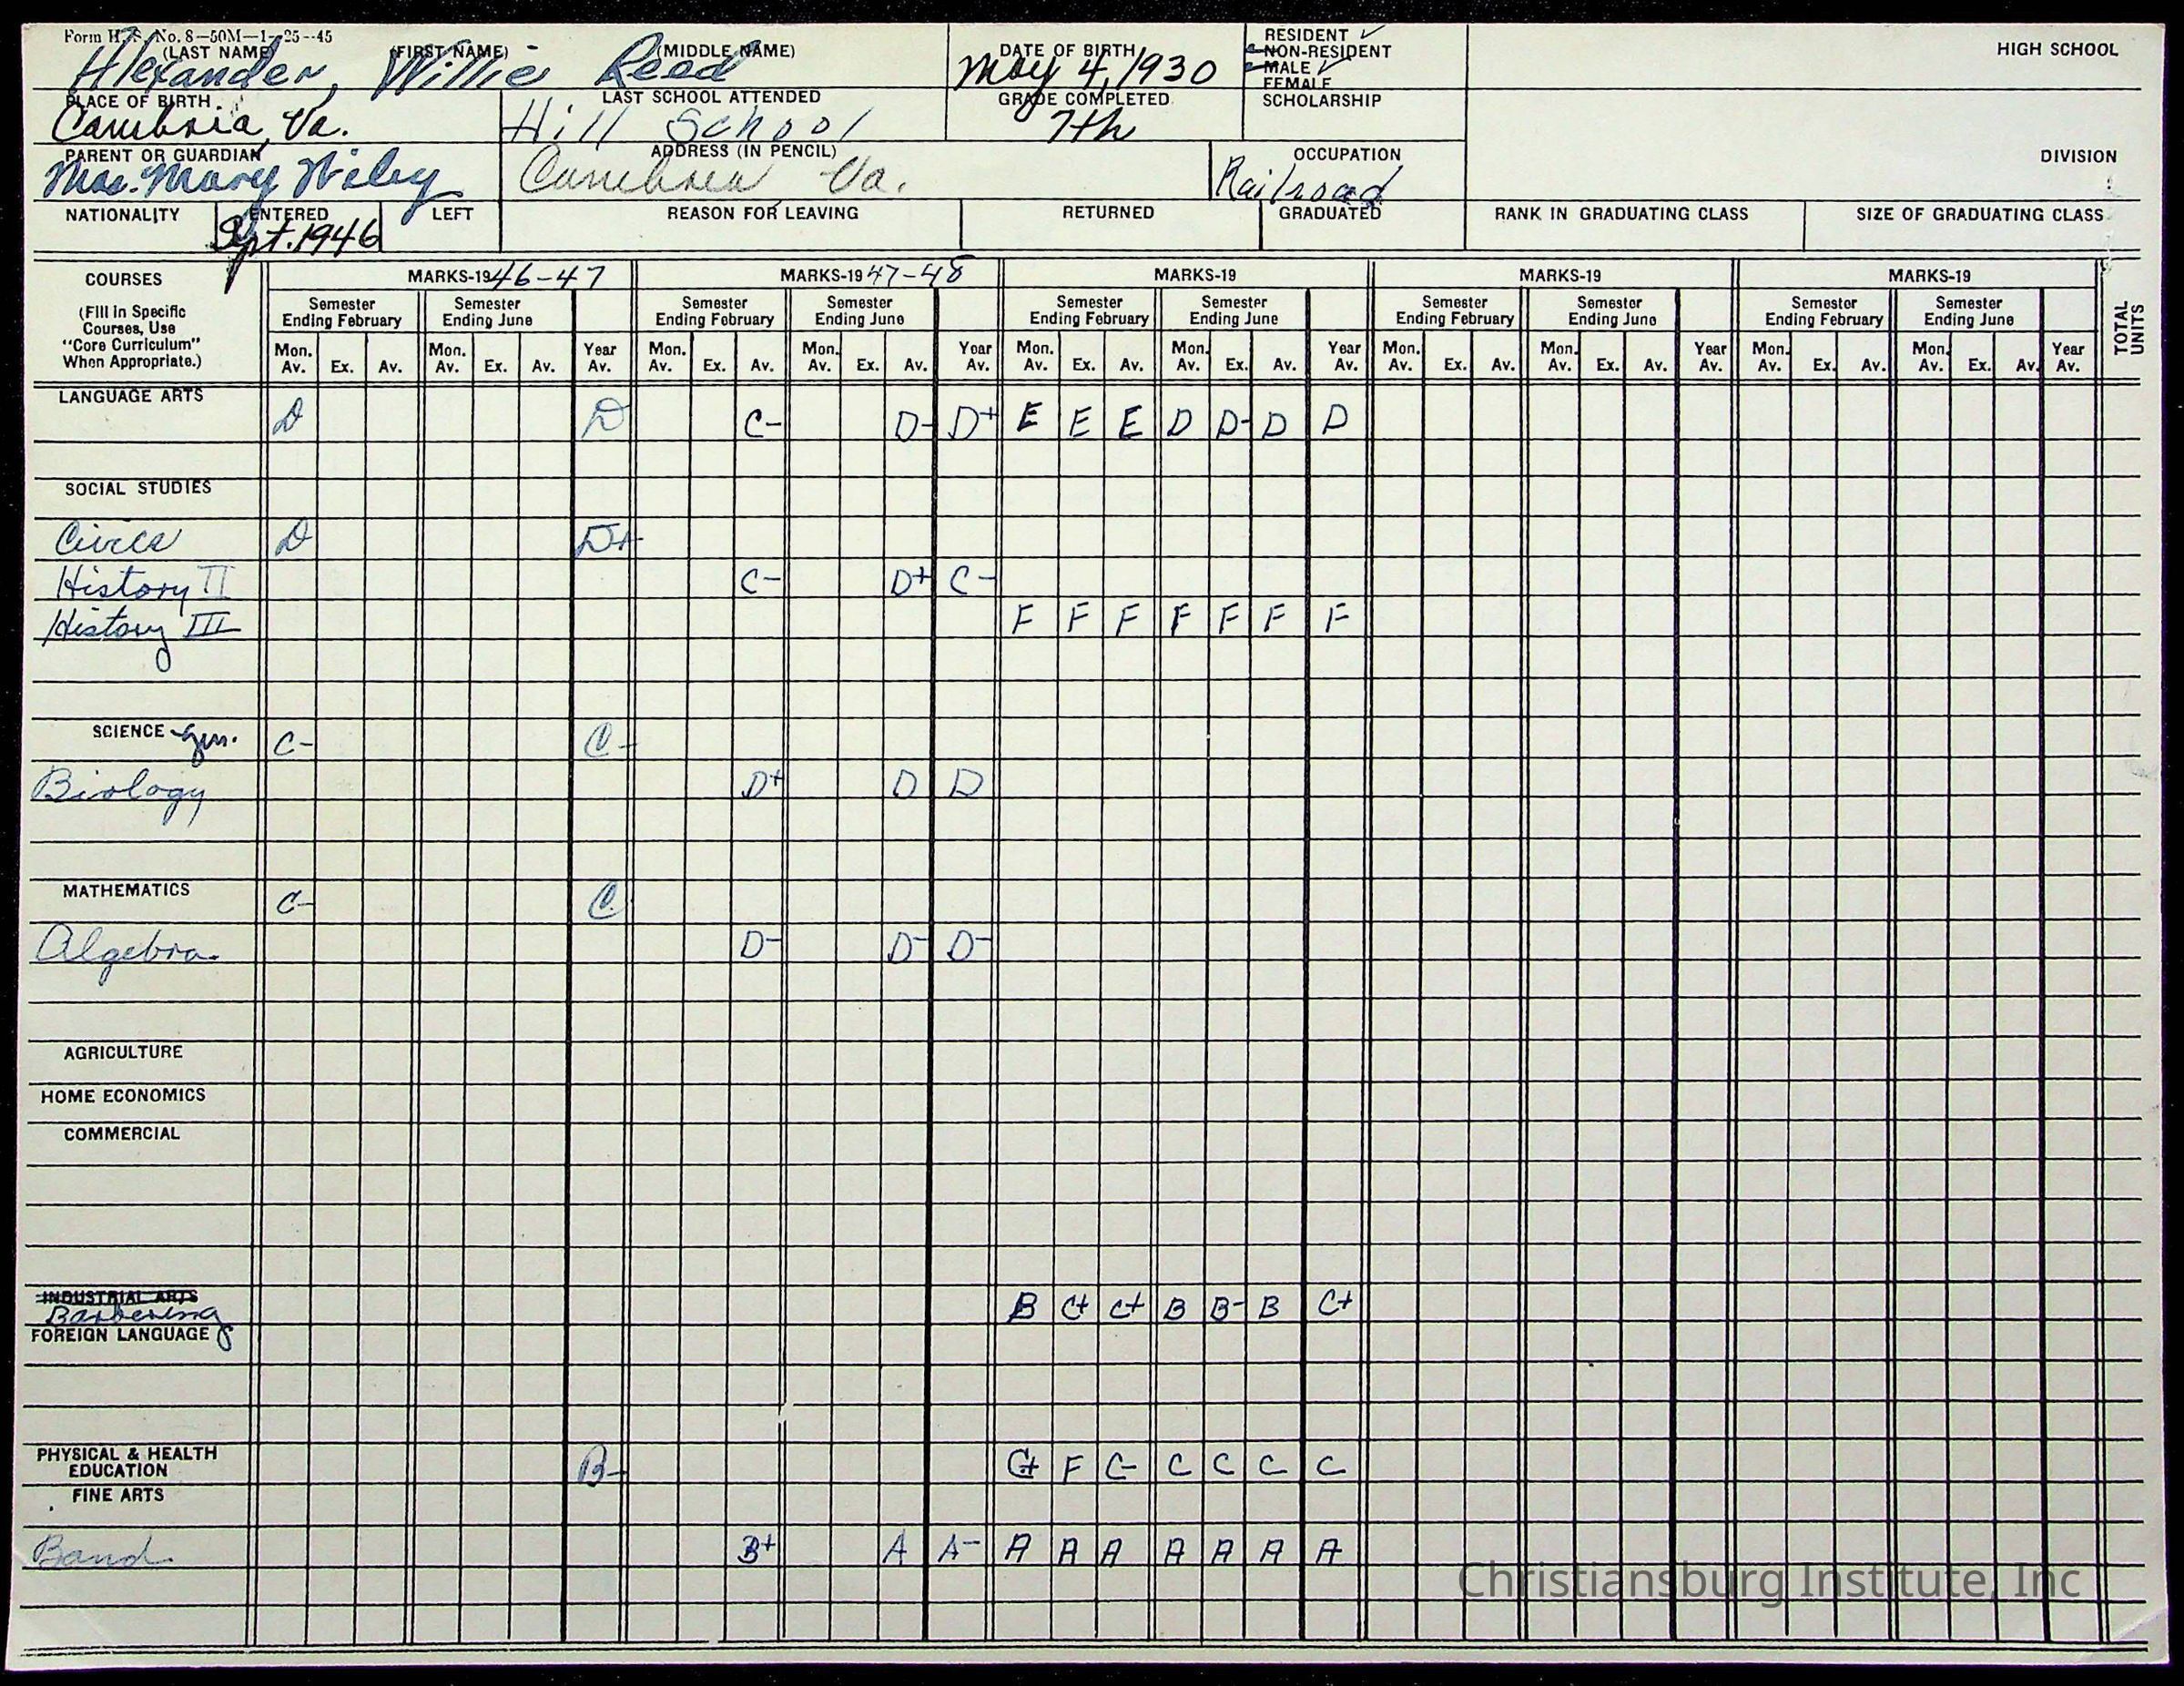 Form H.S. No. 8—50M—1-25-45
(LAST NAME) (FIRST NAME) (MIDDLE NAME) DATE OF BIRTH RESIDENT ✓ HIGH SCHOOL
Alexander, Willie Reed May 4, 1930 NON-RESIDENT
MALE ✓
FEMALE
PLACE OF BIRTH LAST SCHOOL ATTENDED GRADE COMPLETED SCHOLARSHIP
Cambria, Va. Hill School 7th
PARENT OR GUARDIAN ADDRESS (IN PENCIL) OCCUPATION DIVISION
Mrs. Mary Wiley Cambria Va. Railroad
NATIONALITY ENTERED LEFT REASON FOR LEAVING RETURNED GRADUATED RANK IN GRADUATING CLASS SIZE OF GRADUATING CLASS
Sept. 1946
COURSES MARKS-1946-47 MARKS-1947-48 MARKS-19 MARKS-19 MARKS-19
(Fill in Specific Courses, Use "Core Curriculum" When Appropriate.)
Semester Ending February Semester Ending June Semester Ending February Semester Ending June Semester Ending February Semester Ending June Semester Ending February Semester Ending June Semester Ending February Semester Ending June TOTAL UNITS
Mon. Av. Ex. Av. Mon. Av. Ex. Av. Year Av. Mon. Av. Ex. Av. Mon. Av. Ex. Av. Year Av. Mon. Av. Ex. Av. Mon. Av. Ex. Av. Year Av. Mon. Av. Ex. Av. Mon. Av. Ex. Av. Year Av. Mon. Av. Ex. Av. Mon. Av. Ex. Av. Year Av.
LANGUAGE ARTS D D C- D- D+ E E E D D- D D
SOCIAL STUDIES
Civics D D+
History II C- D+ C-
History III F F F F F F F
SCIENCE - Gen. C- C-
Biology D+ D D
MATHEMATICS C- C
Algebra D- D- D-
AGRICULTURE
HOME ECONOMICS
COMMERCIAL
INDUSTRIAL ARTS
Barbering B C+ C+ B B- B C+
FOREIGN LANGUAGE
PHYSICAL & HEALTH EDUCATION B- C+ F C- C C C C
FINE ARTS
Band B+ A A- A A A A A A A
Christiansburg Institute, Inc